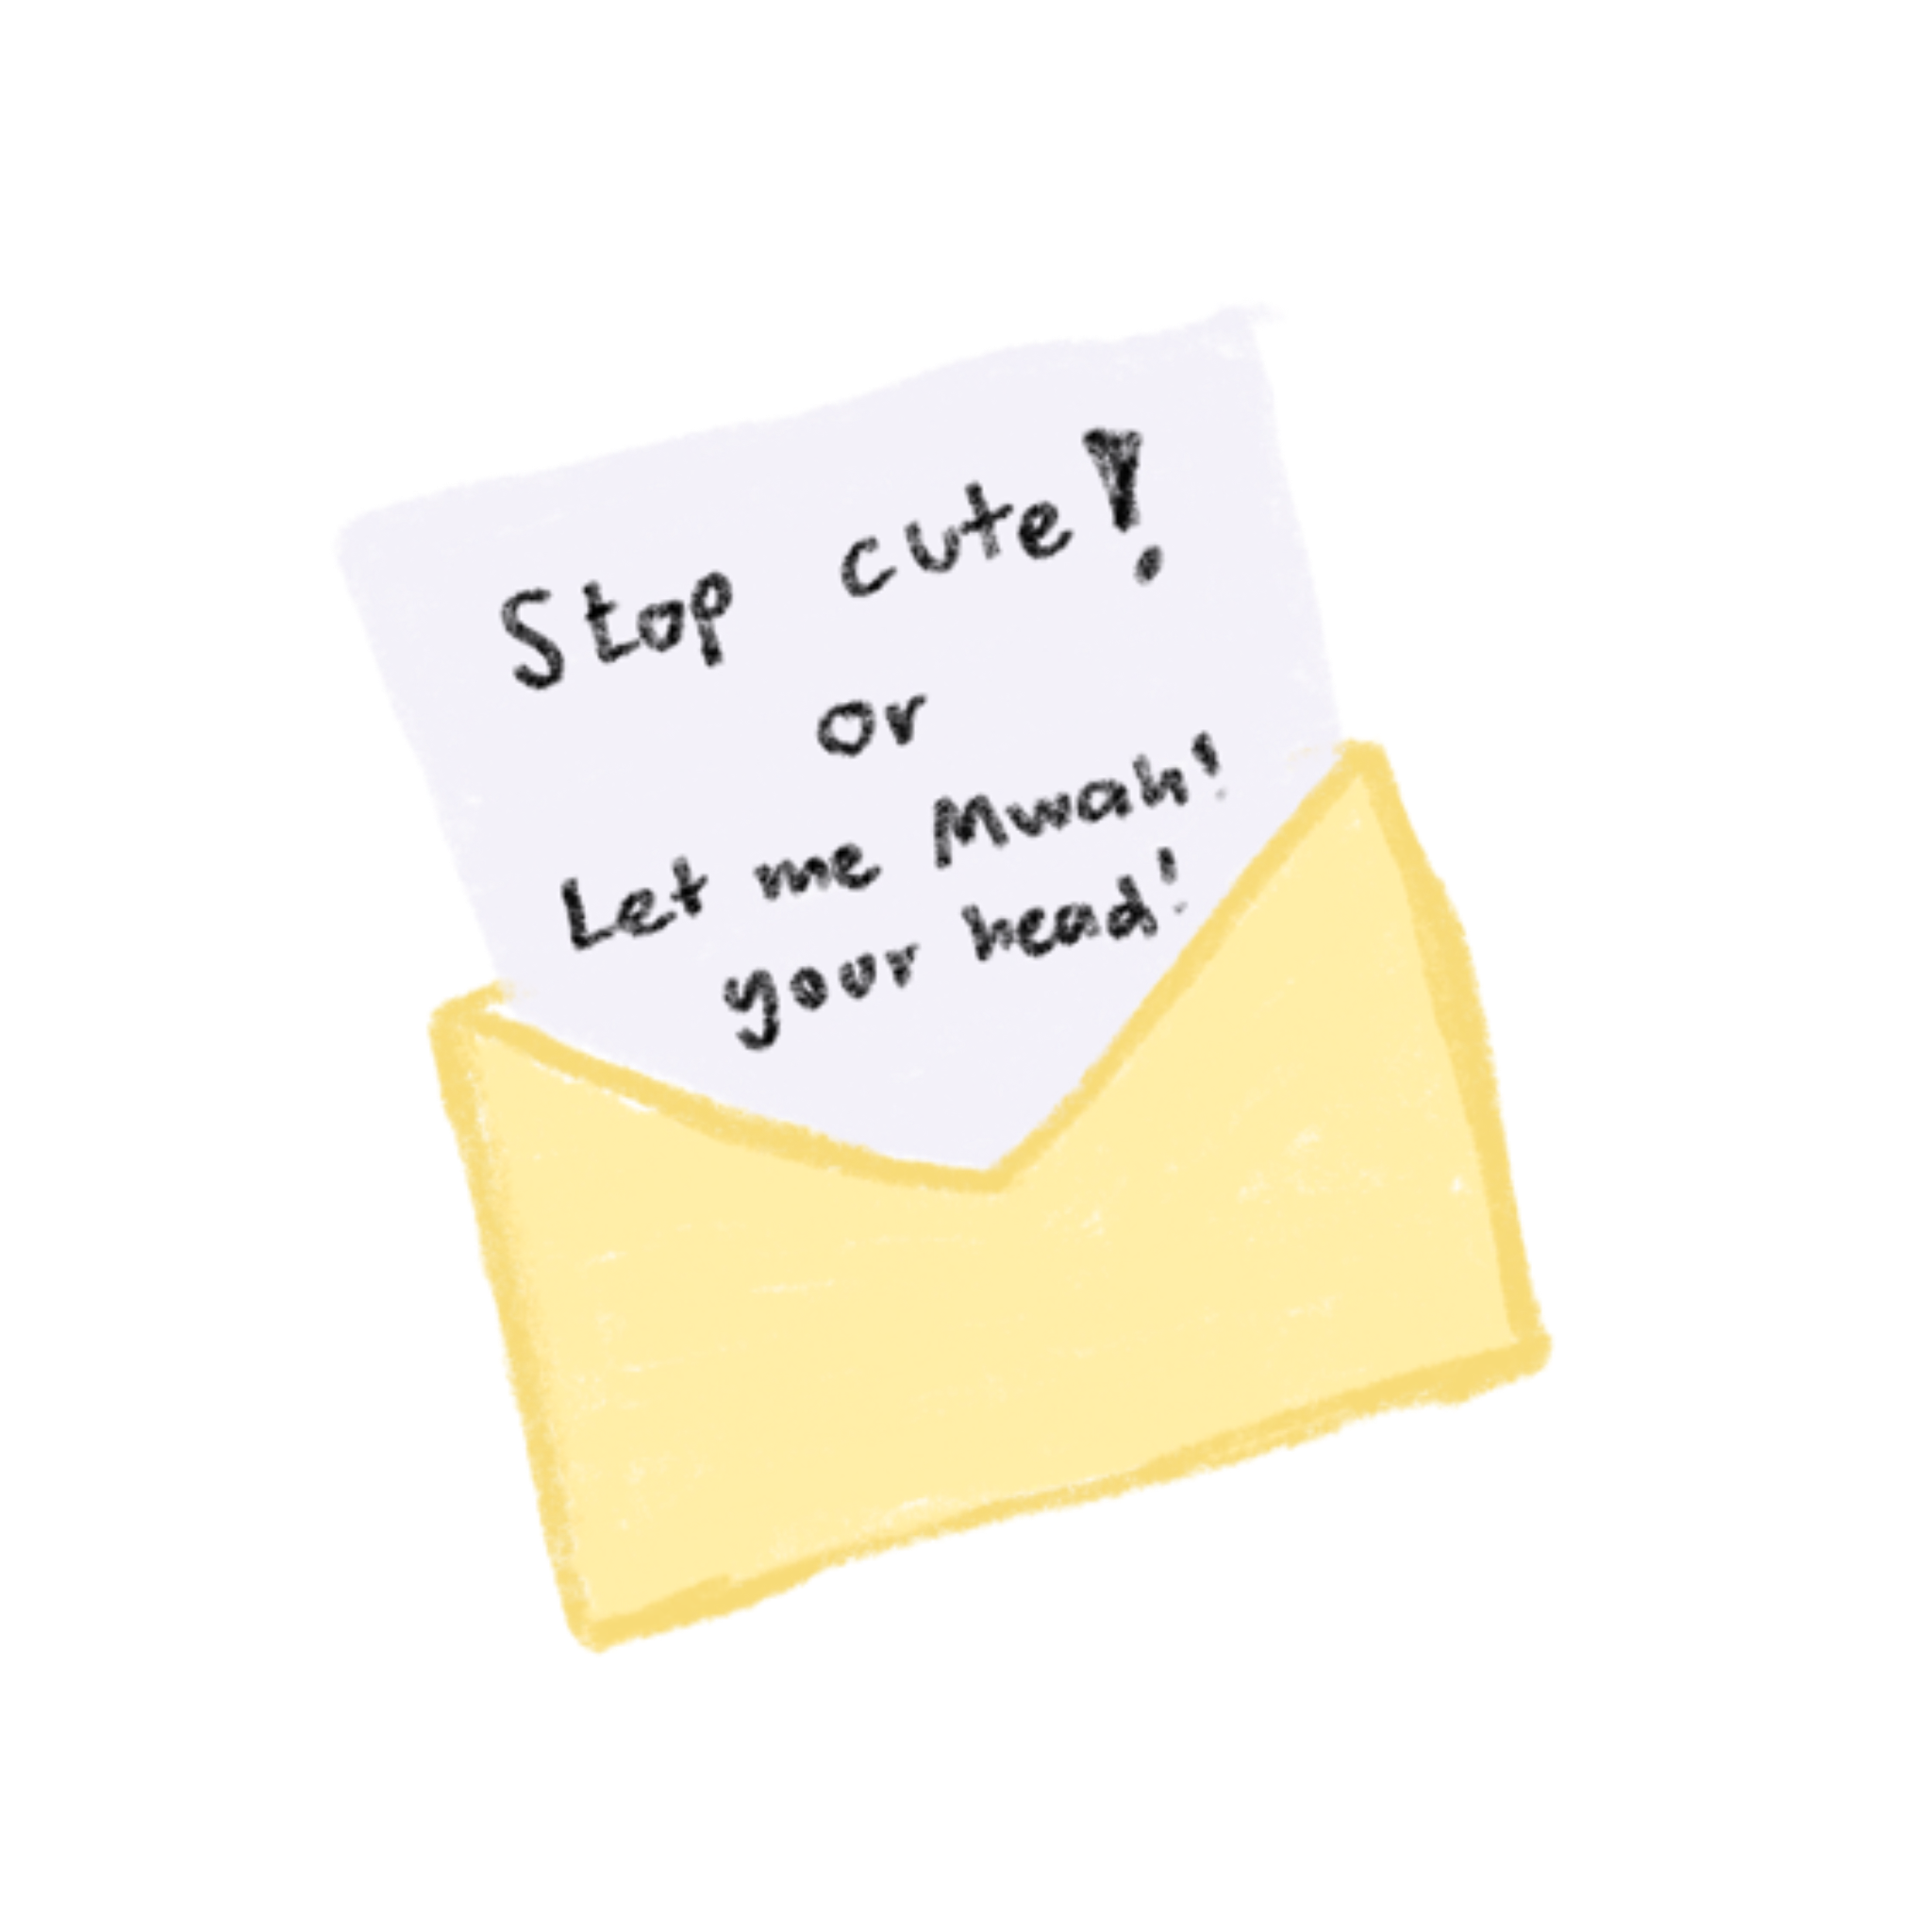 Stop cute!
or
Let me Mwah!
your head!